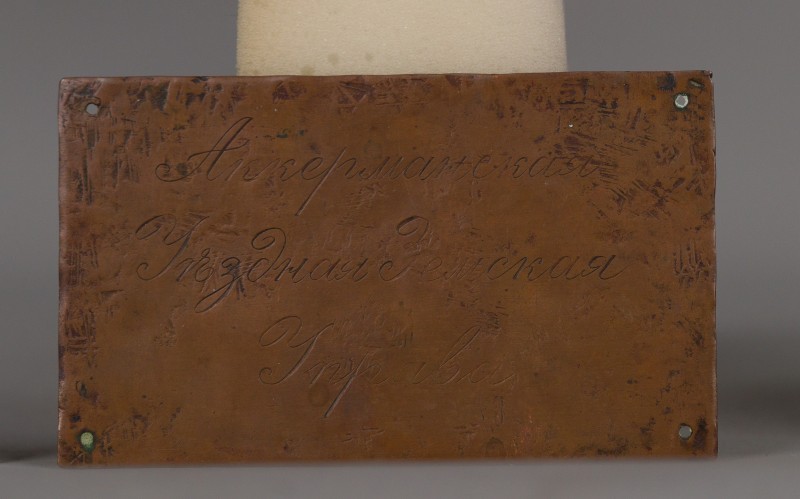 Аккерманская
Уѣздная Земская
Управа